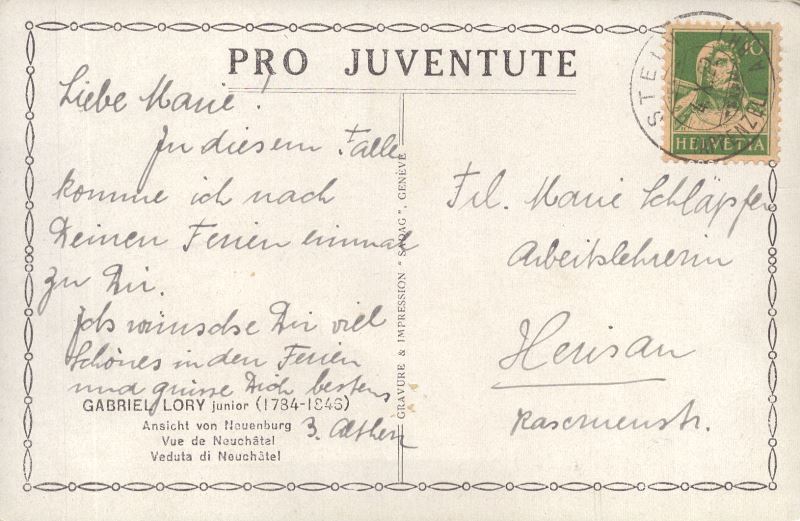 PRO JUVENTUTE
Liebe Marie!
In diesem Falle
komme ich nach
Deinen Ferien einmal
zu Dir.
Ich wünsche Dir viel
Schönes in den Ferien
und grüsse Dich bestens
GABRIEL LORY junior (1784-1846)
Ansicht von Neuenburg
Vue de Neuchâtel
Veduta di Neuchâtel
GRAVURE & IMPRESSION "SADAG", GENÈVE
10
HELVETIA
Frl. Marie Schläpfer
Arbeitslehrerin
Herisau
Kasernenstr.